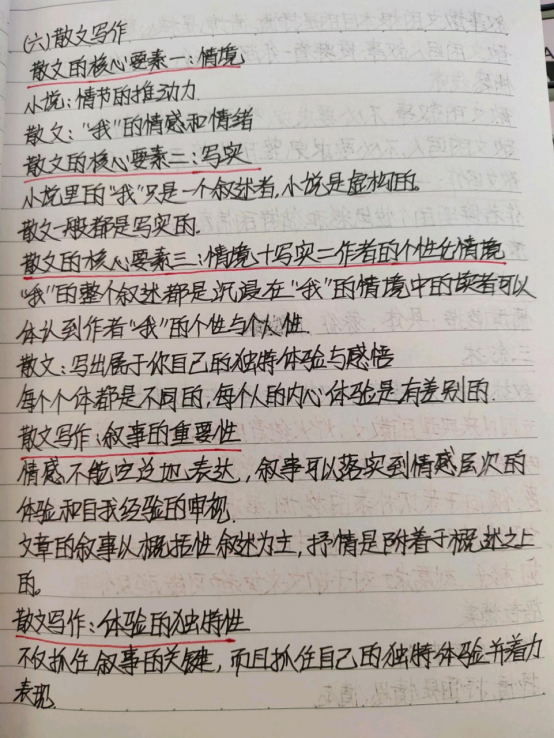 (六)散文写作
散文的核心要素一:情境
小说:情节的推动力
散文:“我”的情感和情绪
散文的核心要素二:写实
小说里的“我”只是一个叙述者,小说是虚构的。
散文一般都是写实的.
散文的核心要素三:情境+写实=作者的个性化情境
“我”的整个叙述都是沉浸在“我”的情境中的读者可以
体认到作者“我”的个性与个人性.
散文:写出属于你自己的独特体验与感悟
每个个体都是不同的,每个人的内心体验是有差别的.
散文写作:叙事的重要性
情感不能空泛地表达,叙事可以落实到情感层次的
体验和自我经验的审视.
文章的叙事以概括性叙述为主,抒情是附着于概述之上
的。
散文写作:体验的独特性
不仅抓住叙事的关键,而且抓住自己的独特体验并着力
表现.